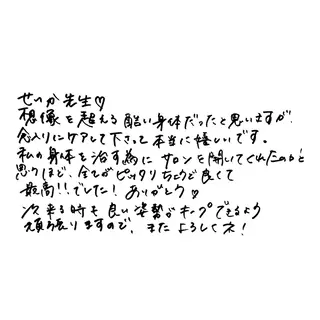 せいか先生♡
想像を超える酷い身体だったと思いますが、
念入りにケアして下さって本当に嬉しいです。
私の身体を治す為にサロンを開いてくれたのかと
思うほど、全てがピッタリちょうど良くて
最高!!でした！ありがとう♡
次来る時も良い姿勢がキープできるよう
頑張りますので、またよろしくネ！